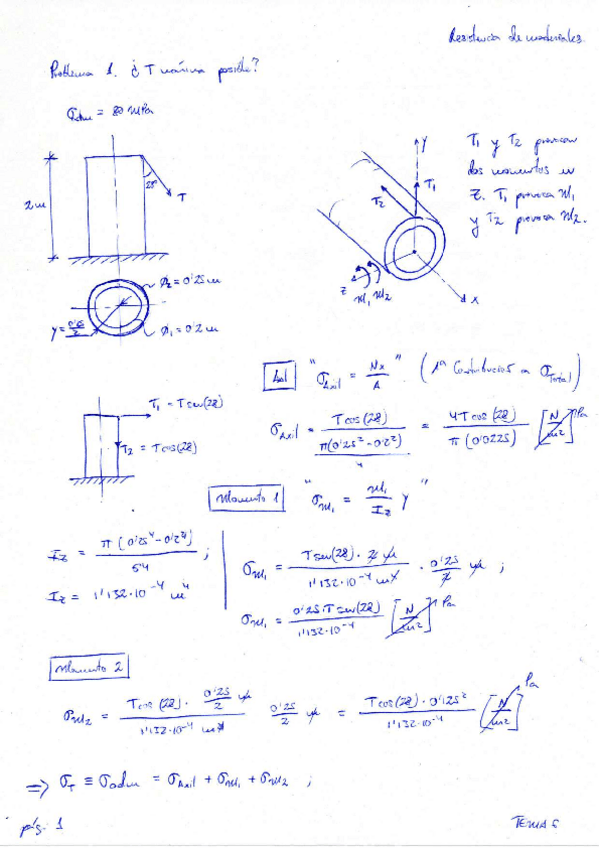 Resistencia de materiales.
Problema 1. ¿T máxima posible?
σadm = 80 MPa
2 m
28º
T
Ø2 = 0'25 m
y = 0'25/2
Ø1 = 0'2 m
y
T1
T2
z
M1 M2
x
T1 y T2 provocan
dos momentos en
z. T1 provoca M1
y T2 provoca M2.
Axil "σAxil = Nx/A". (1ª Contribución a σTotal)
T1 = T sen(28)
T2 = T cos(28)
σAxil = T cos(28) / (π(0'25² - 0'2²)/4) = 4T cos(28) / π(0'0225) [N/m²] Pa
Momento 1 "σM1 = M1/Iz y"
Iz = π(0'25⁴ - 0'2⁴)/64 ;
Iz = 1'132·10⁻⁴ m⁴
σM1 = T sen(28) · 2 m / 1'132·10⁻⁴ m⁴ · 0'25/2 m ;
σM1 = 0'25·T sen(28) / 1'132·10⁻⁴ [N/m²] Pa
Momento 2
σM2 = T cos(28) · 0'25/2 m / 1'132·10⁻⁴ m⁴ 0'25/2 m = T cos(28) · 0'125² / 1'132·10⁻⁴ [N/m²] Pa
⇒ σT ≡ σadm = σAxil + σM1 + σM2 ;
pág. 1
TEMA 6